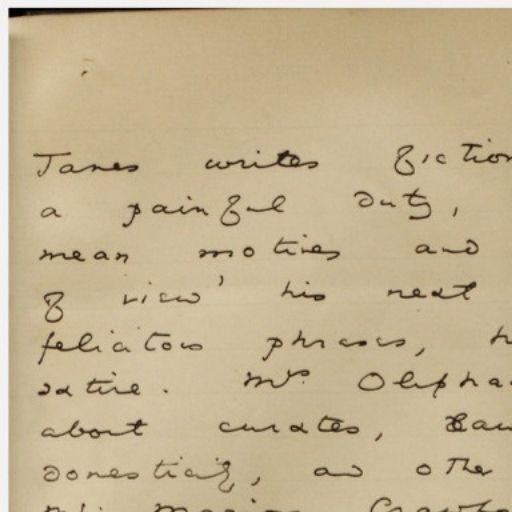 James writes fiction
a painful duty,
mean motives and
of view' his neat
felicitous phrases, h
satire. Mrs Olipha
about curates, 
domesticity, and other
Mr. Marion Crawfo